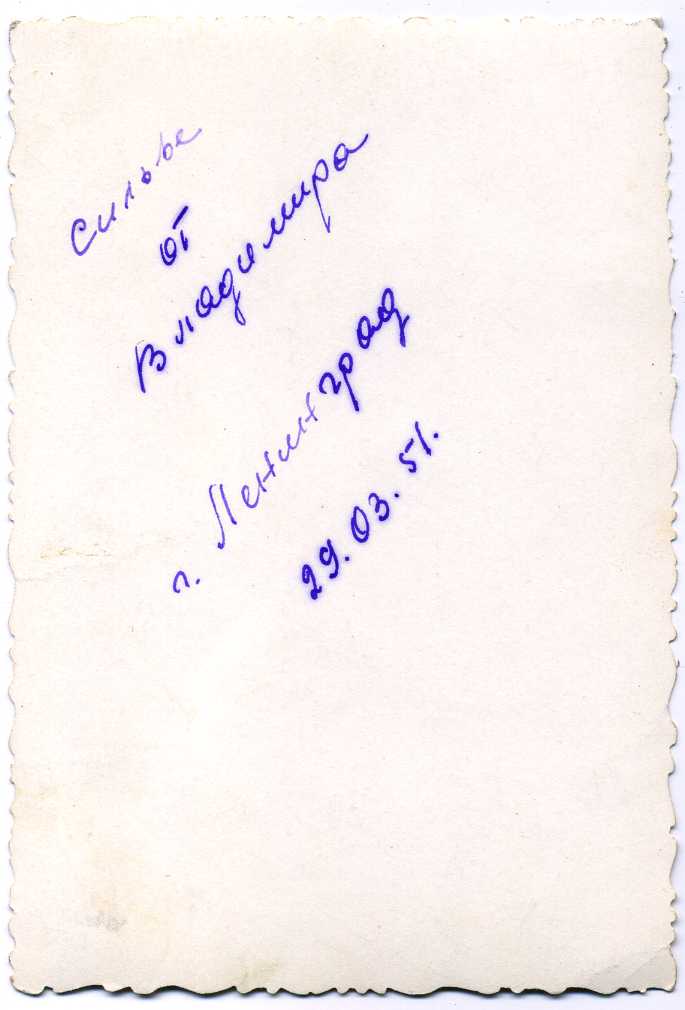 Сильве
от
Владимира
г. Ленинград
29.03.51.